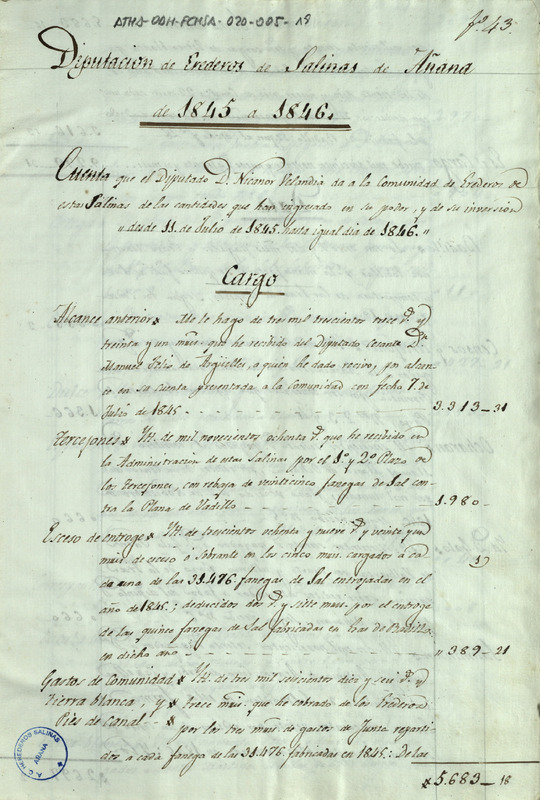 ATHA-DDH-FCHSA-020-005-19
fº 43.
Diputacion de Erederos de Salinas de Añana
de 1845 a 1846.
Cuenta que el Diputado D. Nicanor Velandia da a la Comunidad de Erederos de
estas Salinas de las cantidades que han ingresado en su poder, y de su inversion
" desde 11 de Julio de 1845 hasta igual dia de 1846. "
Cargo
Alcance anterior Me le hago de tres mil trescientos trece r.s y
treinta y un mais. que he recibido del Diputado cesante Dn.
Manuel de Argüelles, a quien he dado recivo, por alcan-
ce en su cuenta presentada a la Comunidad con fecha 7 de
Julio de 1845 - - - - 3.313-31
Tercejones Yt. de mil novecientos ochenta r.s que he recibido en
la Administracion de estas Salinas por el 1º y 2º Plazo de
los Tercejones, con rebaja de veinticinco fanegas de Sal con-
tra la Plana de Vadillo - - - 1.980
Esceso de entroge Yt. de trescientos ochenta y nueve r.s y veinte y un
mais. de esceso ó sobrante en los cinco mais. cargados á ca-
da una de las 31.476 fanegas de Sal entrojadas en el
ano de 1845; deducidos dos r.s y siete mais. por el entroge
de las quince fanegas de Sal fabricadas en Eras de
en dicho ano - - - " 389-21
Gastos de Comunidad Yt. de tres mil seiscientos diez y seis r.s y
Tierra blanca, y trece mais. que he cobrado de los Erederos
Piés de Canal - por los tres mais. de gastos de Junta reparti-
dos a cada fanega de las 31.476 fabricadas en 1845: De las
5.683-18
A.C. HEREDEROS SALINAS
AÑANA